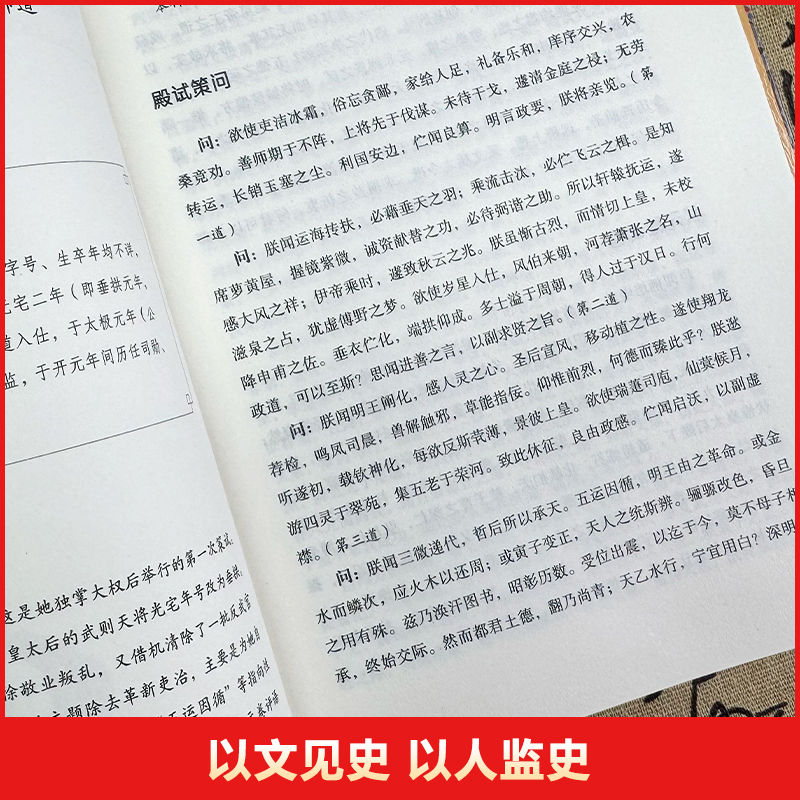 字号、生卒年均不详,
光宅二年(即垂拱元年,
道入仕,于太极元年(公
监,于开元年间历任司勋、
这是她独掌大权后举行的第一次策试,
皇太后的武则天将光宅年号改为垂拱,
徐敬业叛乱,又借机清除了一批反武官
主题除去革新吏治,主要是为她自
五运因循”等指向改
殿试策问
问:欲使吏洁冰霜,俗忘贪鄙,家给人足,礼备乐和,庠序交兴,农
桑竞劝。善师期于不阵,上将先于伐谋。未待干戈,遽清金庭之祲;无劳
转运,长销玉塞之尘。利国安边,伫闻良算。明言政要,朕将亲览。(第
一道)
问:朕闻运海抟扶,必藉垂天之羽;乘流击汰,必伫飞云之楫。是知
席萝黄屋,握镜紫微,诚资献替之功,必待弼谐之助。所以轩辕抚运,遂
感大风之祥;伊帝乘时,遽致秋云之兆。朕虽惭古烈,而情切上皇,未校
滋泉之占,犹虚傅野之梦。欲使岁星入仕,风伯来朝,河荐萧张之名,山
降申甫之佐。垂衣伫化,端拱仰成。多士溢于周朝,得人过于汉日。行何
政道,可以至斯?思闻进善之言,以副求贤之旨。(第二道)
问:朕闻明王阐化,感人灵之心。圣后宣风,移动植之性。遂使翔龙
荐检,鸣凤司晨,兽解触邪,草能指佞。仰惟前烈,何德而臻此乎?朕逖
听遂初,载钦神化,每欲反斯莸薄,景彼上皇。欲使瑞萐司庖,仙蓂候月,
游四灵于翠苑,集五老于荣河。致此休征,良由政感。伫闻启沃,以副虚
襟。(第三道)
问:朕闻三微递代,哲后所以承天。五运因循,明王由之革命。或金
水而鳞次,应火木以还周;或寅子变正,天人之统斯辨。骊骧改色,昏旦
之用有殊。兹乃涣汗图书,昭彰历数。受位出震,以迄于今,莫不母子相
承,终始交际。然而都君土德,翻乃尚青;天乙水行,宁宜用白?深明
以文见史 以人监史